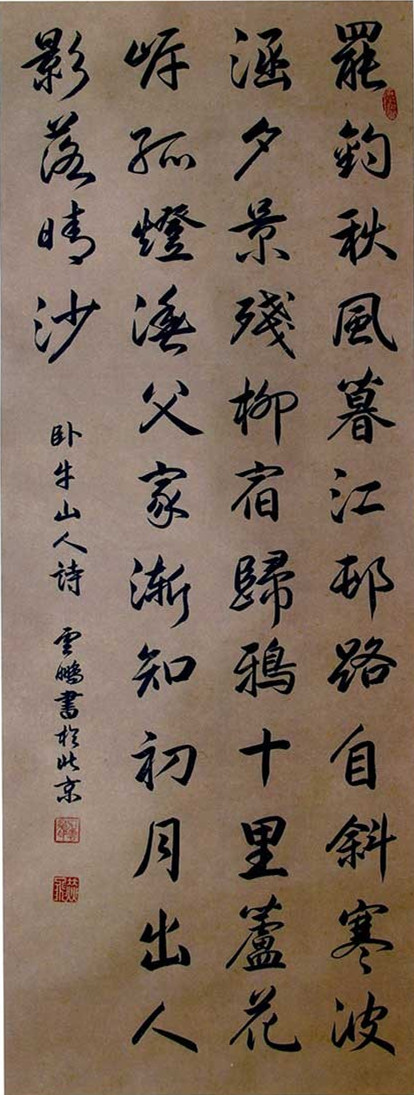 罷釣秋風暮江邨路自斜寒波
涵夕景殘柳宿歸鴉十里蘆花
岸孤燈漁父家漸知初月出人
影落晴沙
卧牛山人詩 雲鵬書於北京